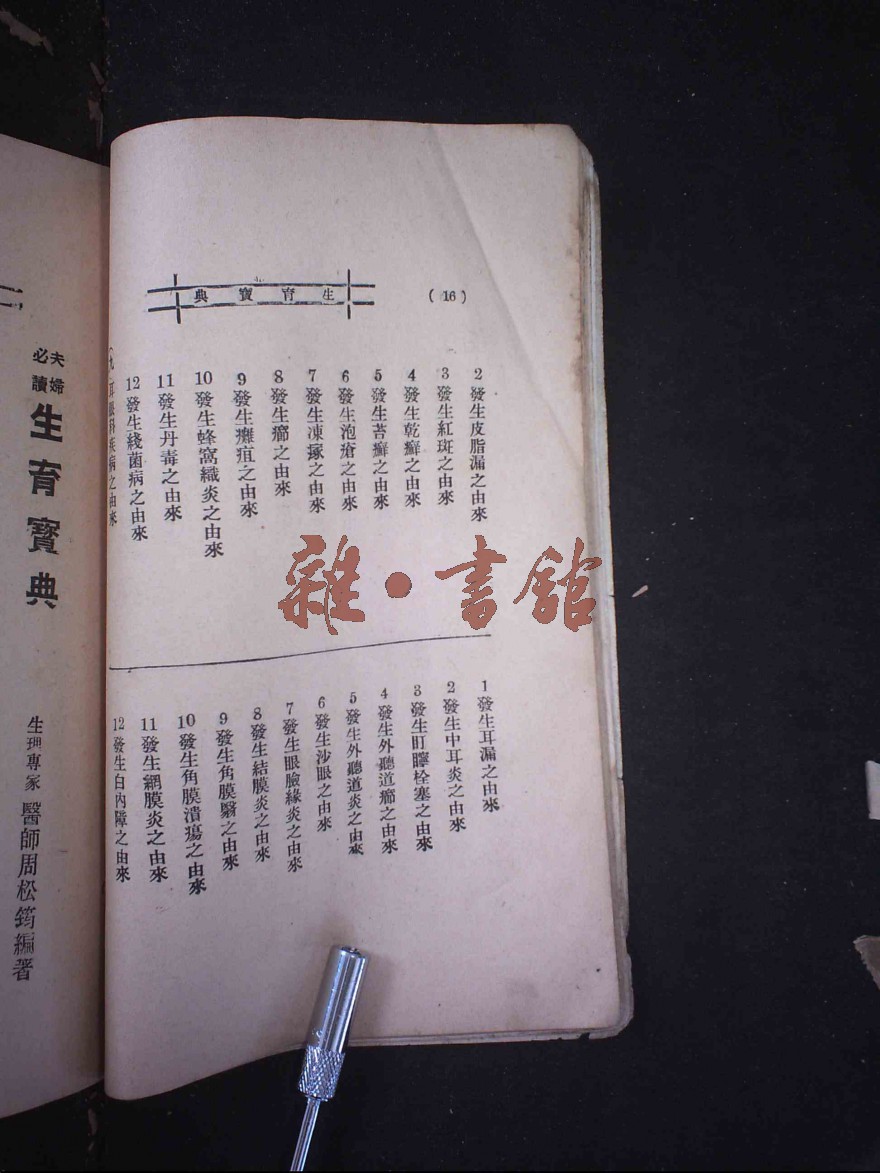 (16)
生育寶典
2 發生皮脂漏之由來
3 發生紅斑之由來
4 發生乾癬之由來
5 發生苔癬之由來
6 發生泡瘡之由來
7 發生凍瘃之由來
8 發生癤之由來
9 發生癰疽之由來
10 發生蜂窩織炎之由來
11 發生丹毒之由來
12 發生綫菌病之由來
九 耳眼科疾病之由來
1 發生耳漏之由來
2 發生中耳炎之由來
3 發生盯聹栓塞之由來
4 發生外聽道癤之由來
5 發生外聽道炎之由來
6 發生沙眼之由來
7 發生眼臉緣炎之由來
8 發生結膜炎之由來
9 發生角膜翳之由來
10 發生角膜潰瘍之由來
11 發生網膜炎之由來
12 發生白內障之由來
夫婦必讀
生育寶典
生理專家 醫師周松筠編著
雜·書館